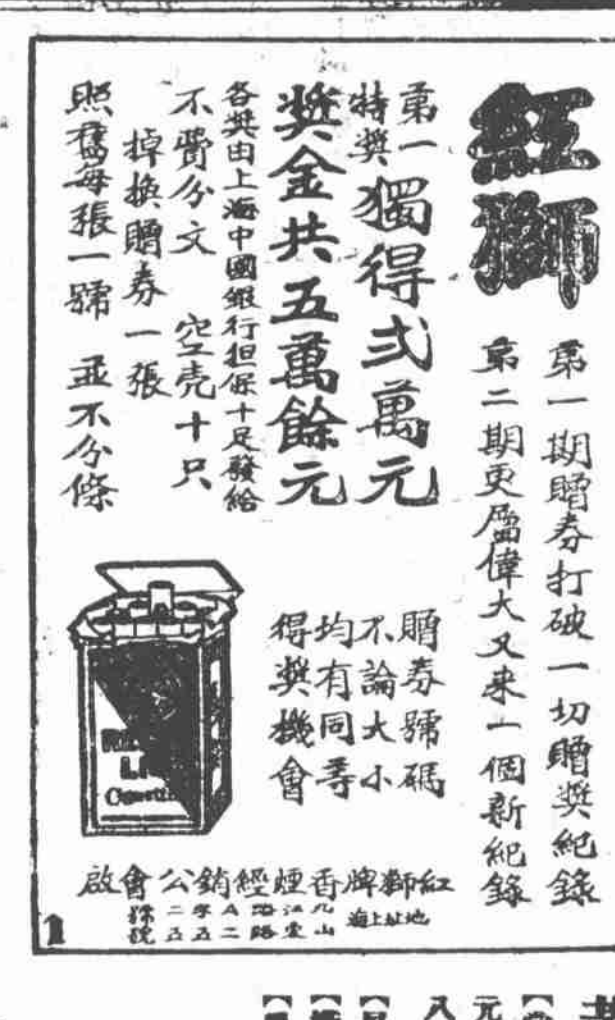 紅獅
第一期贈券打破一切贈獎紀錄
第二期更屬偉大又来一個新紀錄
第一特獎獨得弍萬元
獎金共五萬餘元
各獎由上海中國銀行担保十足發給
不費分文 空壳十只
掉換贈券一張
照舊每張一號 並不分條
贈券號碼
不論大小
均有同等
得獎機會
紅獅牌香煙經銷公會啟
地址上海九江路
1